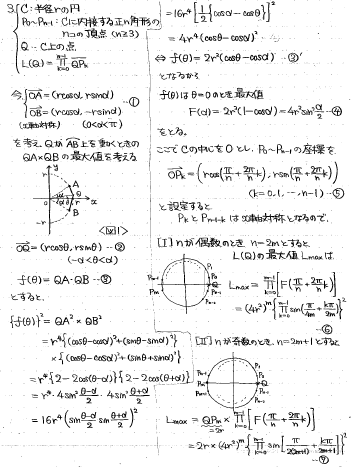 3. C: 半径rの円
P₀〜Pₙ₋₁: Cに内接する正n角形の
nコの頂点 (n≧3)
Q … C上の点
L(Q) = ∏_{k=0}^{n-1} QPₖ
今, { OA→ = (rcosα, rsinα)
OB→ = (rcosα, -rsinα) …①
(x軸対称) (0<α<π)
を考え, Qが AB⌒ 上を動くときの
QA×QBの最大値を考える
y
A
Q
θ
x
B
<図1>
OQ→ = (rcosθ, rsinθ) …②
(-α<θ<α)
f(θ) = QA・QB …③
とすると,
{f(θ)}² = QA² × QB²
= r⁴{(cosθ-cosα)²+(sinθ-sinα)²}
× {(cosθ-cosα)²+(sinθ+sinα)²}
= r⁴{2-2cos(θ-α)}{2-2cos(θ+α)}
= r⁴・4sin² (θ-α)/2 ・4sin² (θ+α)/2
= 16r⁴ (sin (θ-α)/2 sin (θ+α)/2)²
= 16r⁴ [ 1/2 {cosα-cosθ} ]²
= 4r⁴ (cosθ-cosα)²
⇔ f(θ) = 2r²(cosθ-cosα) …③'
となるから
f(θ)はθ=0のとき最大値
F(α) = 2r²(1-cosα) = 4r²sin² α/2 …④
をとる。
ここで Cの中心を O とし, P₀〜Pₙ₋₁ の座標を
OPₖ→ = (rcos(π/n + 2π/n k), rsin(π/n + 2π/n k))
(k=0,1,…,n-1) …⑤
と設定すると
Pₖ と Pₙ₋₁₋ₖ は x軸対称となるので,
[I] nが偶数のとき n=2mとすると
L(Q)の最大値 Lmaxは
Lmax = ∏_{k=0}^{m-1} [F(π/n + 2π/n k)]
= (4r²)ᵐ { ∏_{k=0}^{m-1} sin(π/4m + kπ/2m) }²
…⑥
[II] nが奇数のとき, n=2m+1とすると
Lmax = QPₘ × ∏_{k=0}^{m-1} [F(π/n + 2π/n k)]
=2r
= 2r × (4r²)ᵐ { ∏_{k=0}^{m-1} sin[ π/2(2m+1) + kπ/2m+1 ] }²
…⑦